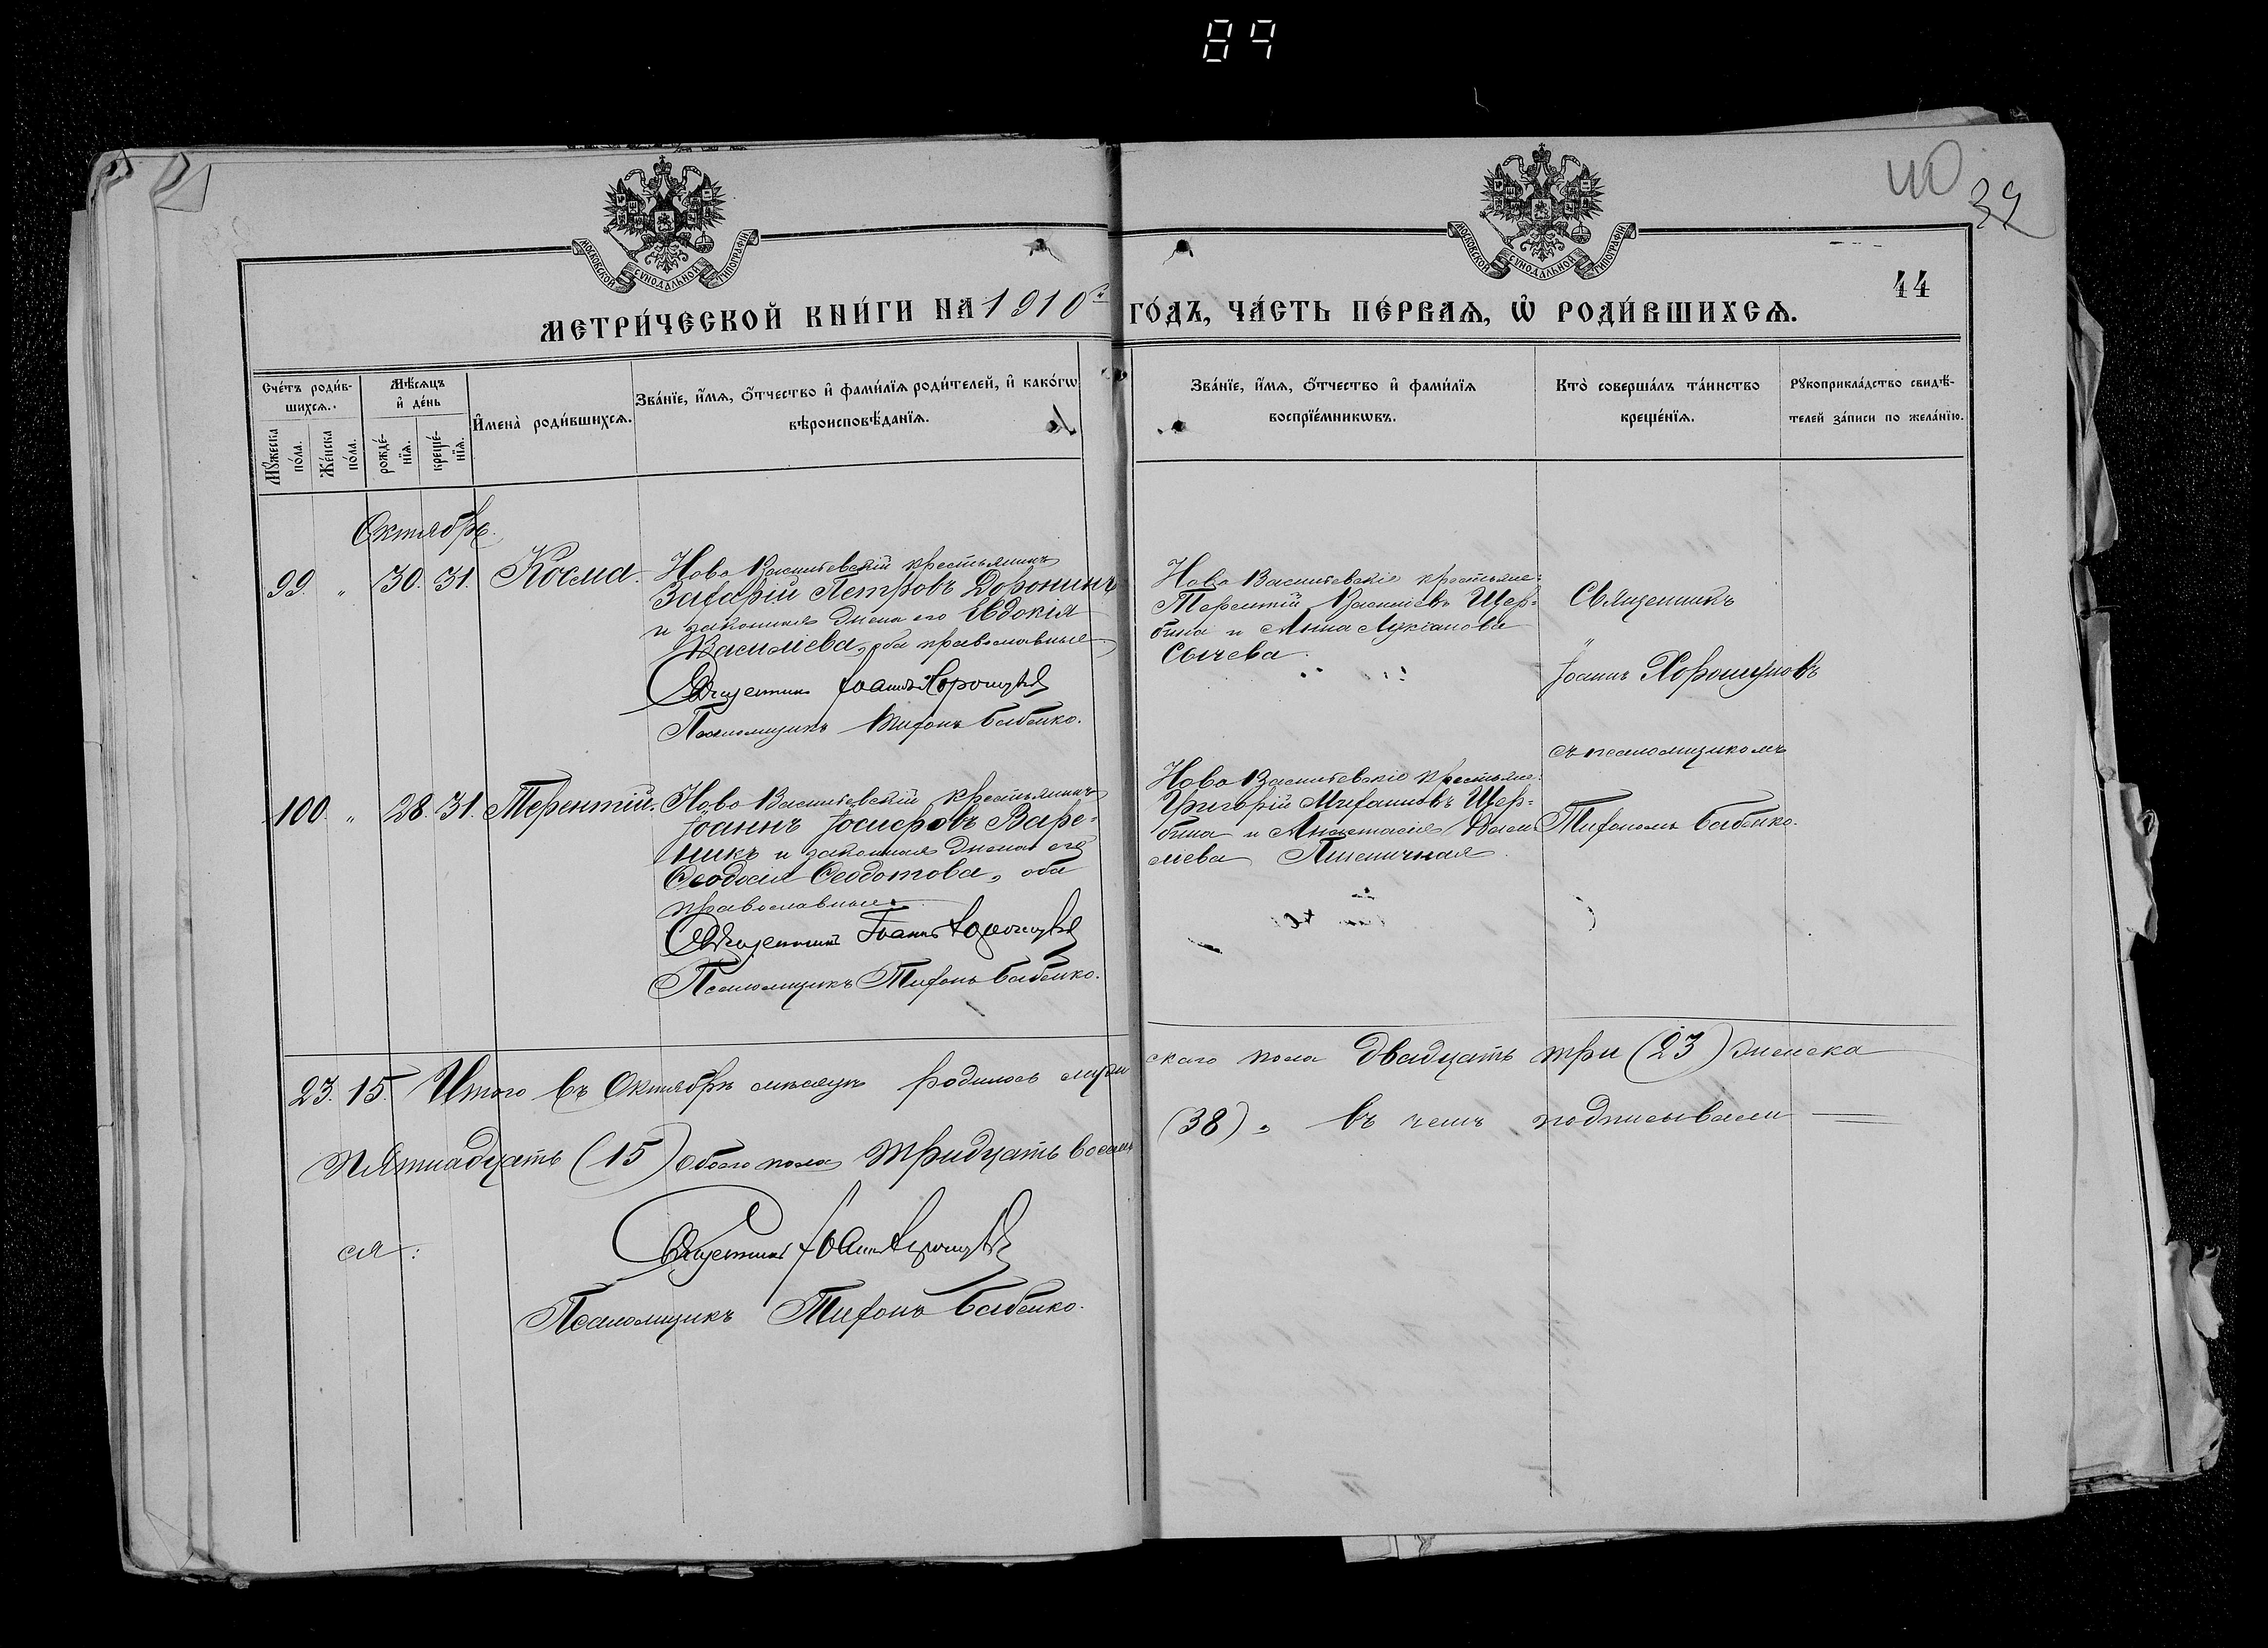 89
40
39
44
МОСКОВСКОЙ СѴНОДАЛЬНОЙ ТИПОГРАФІИ
МОСКОВСКОЙ СѴНОДАЛЬНОЙ ТИПОГРАФІИ
МЕТРИ́ЧЕСКОЙ КНИ́ГИ НА 1910й ГО́ДЪ, ЧА́СТЬ ПЕ́РВАѦ, Ѡ҆ РОДИ́ВШИХСѦ.
Сче́тъ роди́в-
шихсѧ.
Мꙋ́жеска по́ла.
Же́нска по́ла.
Мѣ́сѧцъ
и҆ де́нь
рожде́-
нїѧ.
креще́-
нїѧ.
И҆мена̀ роди́вшихсѧ.
Зва́нїе, и҆́мѧ, ѻ҆́тчество и҆ фами́лїѧ роди́телей, и҆ како́гѡ
вѣроисповѣ́данїѧ.
Зва́нїе, и҆́мѧ, ѻ҆́тчество и҆ фами́лїѧ
воспрїе́мникѡвъ.
Кто̀ соверша́лъ та́инство
креще́нїѧ.
Рꙋкоприкла́дство свидѣ́-
телей за́писи по жела́нїю.
Октябрь.
99. " 30. 31. Косма.
Ново Васильевскій крестьянинъ
Захарій Петровъ Доронинъ
и законная жена его Евдокія
Васильева, оба православные
Священникъ Іоаннъ Хорошуновъ
Псаломщикъ Тихонъ Бабенко.
Ново Васильевскіе крестьяне:
Терентій Васильевъ Щер-
бина и Анна Лукіанова
Сычева.
Священникъ
"
Іоаннъ Хорошуновъ
съ псаломщикомъ
Тихономъ Бабенко.
100. " 28. 31. Терентій.
Ново Васильевскій крестьянинъ
Іоаннъ Іосифовъ Варе-
никъ и законная жена его
Ѳеодосія Ѳеодотова, оба
православные.
Священникъ Іоаннъ Хорошуновъ
Псаломщикъ Тихонъ Бабенко.
Ново Васильевскіе крестьяне:
Григорій Митрофановъ Щер-
бина и Анастасія Васи-
ліева Пшеничная.
23. 15. Итого въ Октябрѣ мѣсяцѣ родилось муже
скаго пола двадцать три (23) женска
пятнадцать (15) обоего пола тридцать восемь
(38), въ чемъ подписываем
ся:
Священникъ Іоаннъ Хорошуновъ
Псаломщикъ Тихонъ Бабенко.